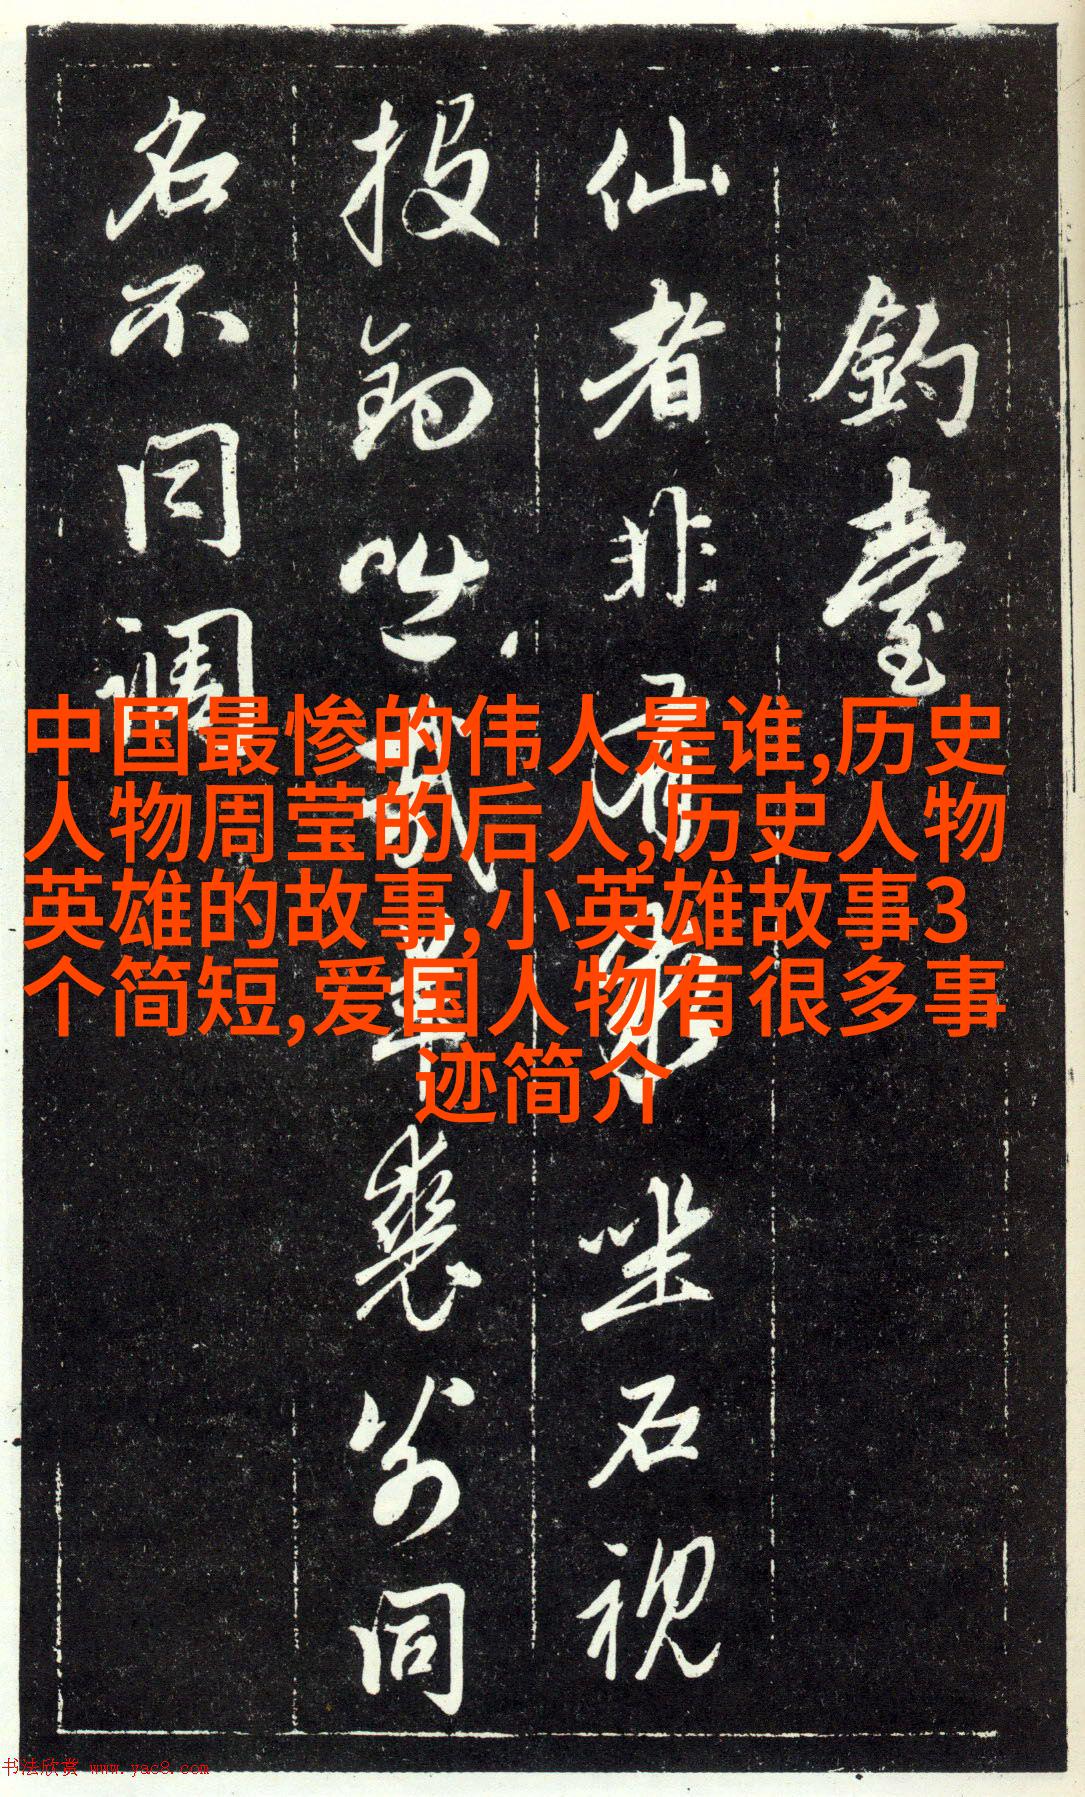 中国最惨的伟人是谁,历史
人物周莹的后人,历史人物
英雄的故事,小英雄故事3
个简短,爱国人物有很多事
迹简介
釣臺
仙者非有求坐石視
投釣咄哉星裘翁同
名不同調
书法欣赏 www.yac8.com